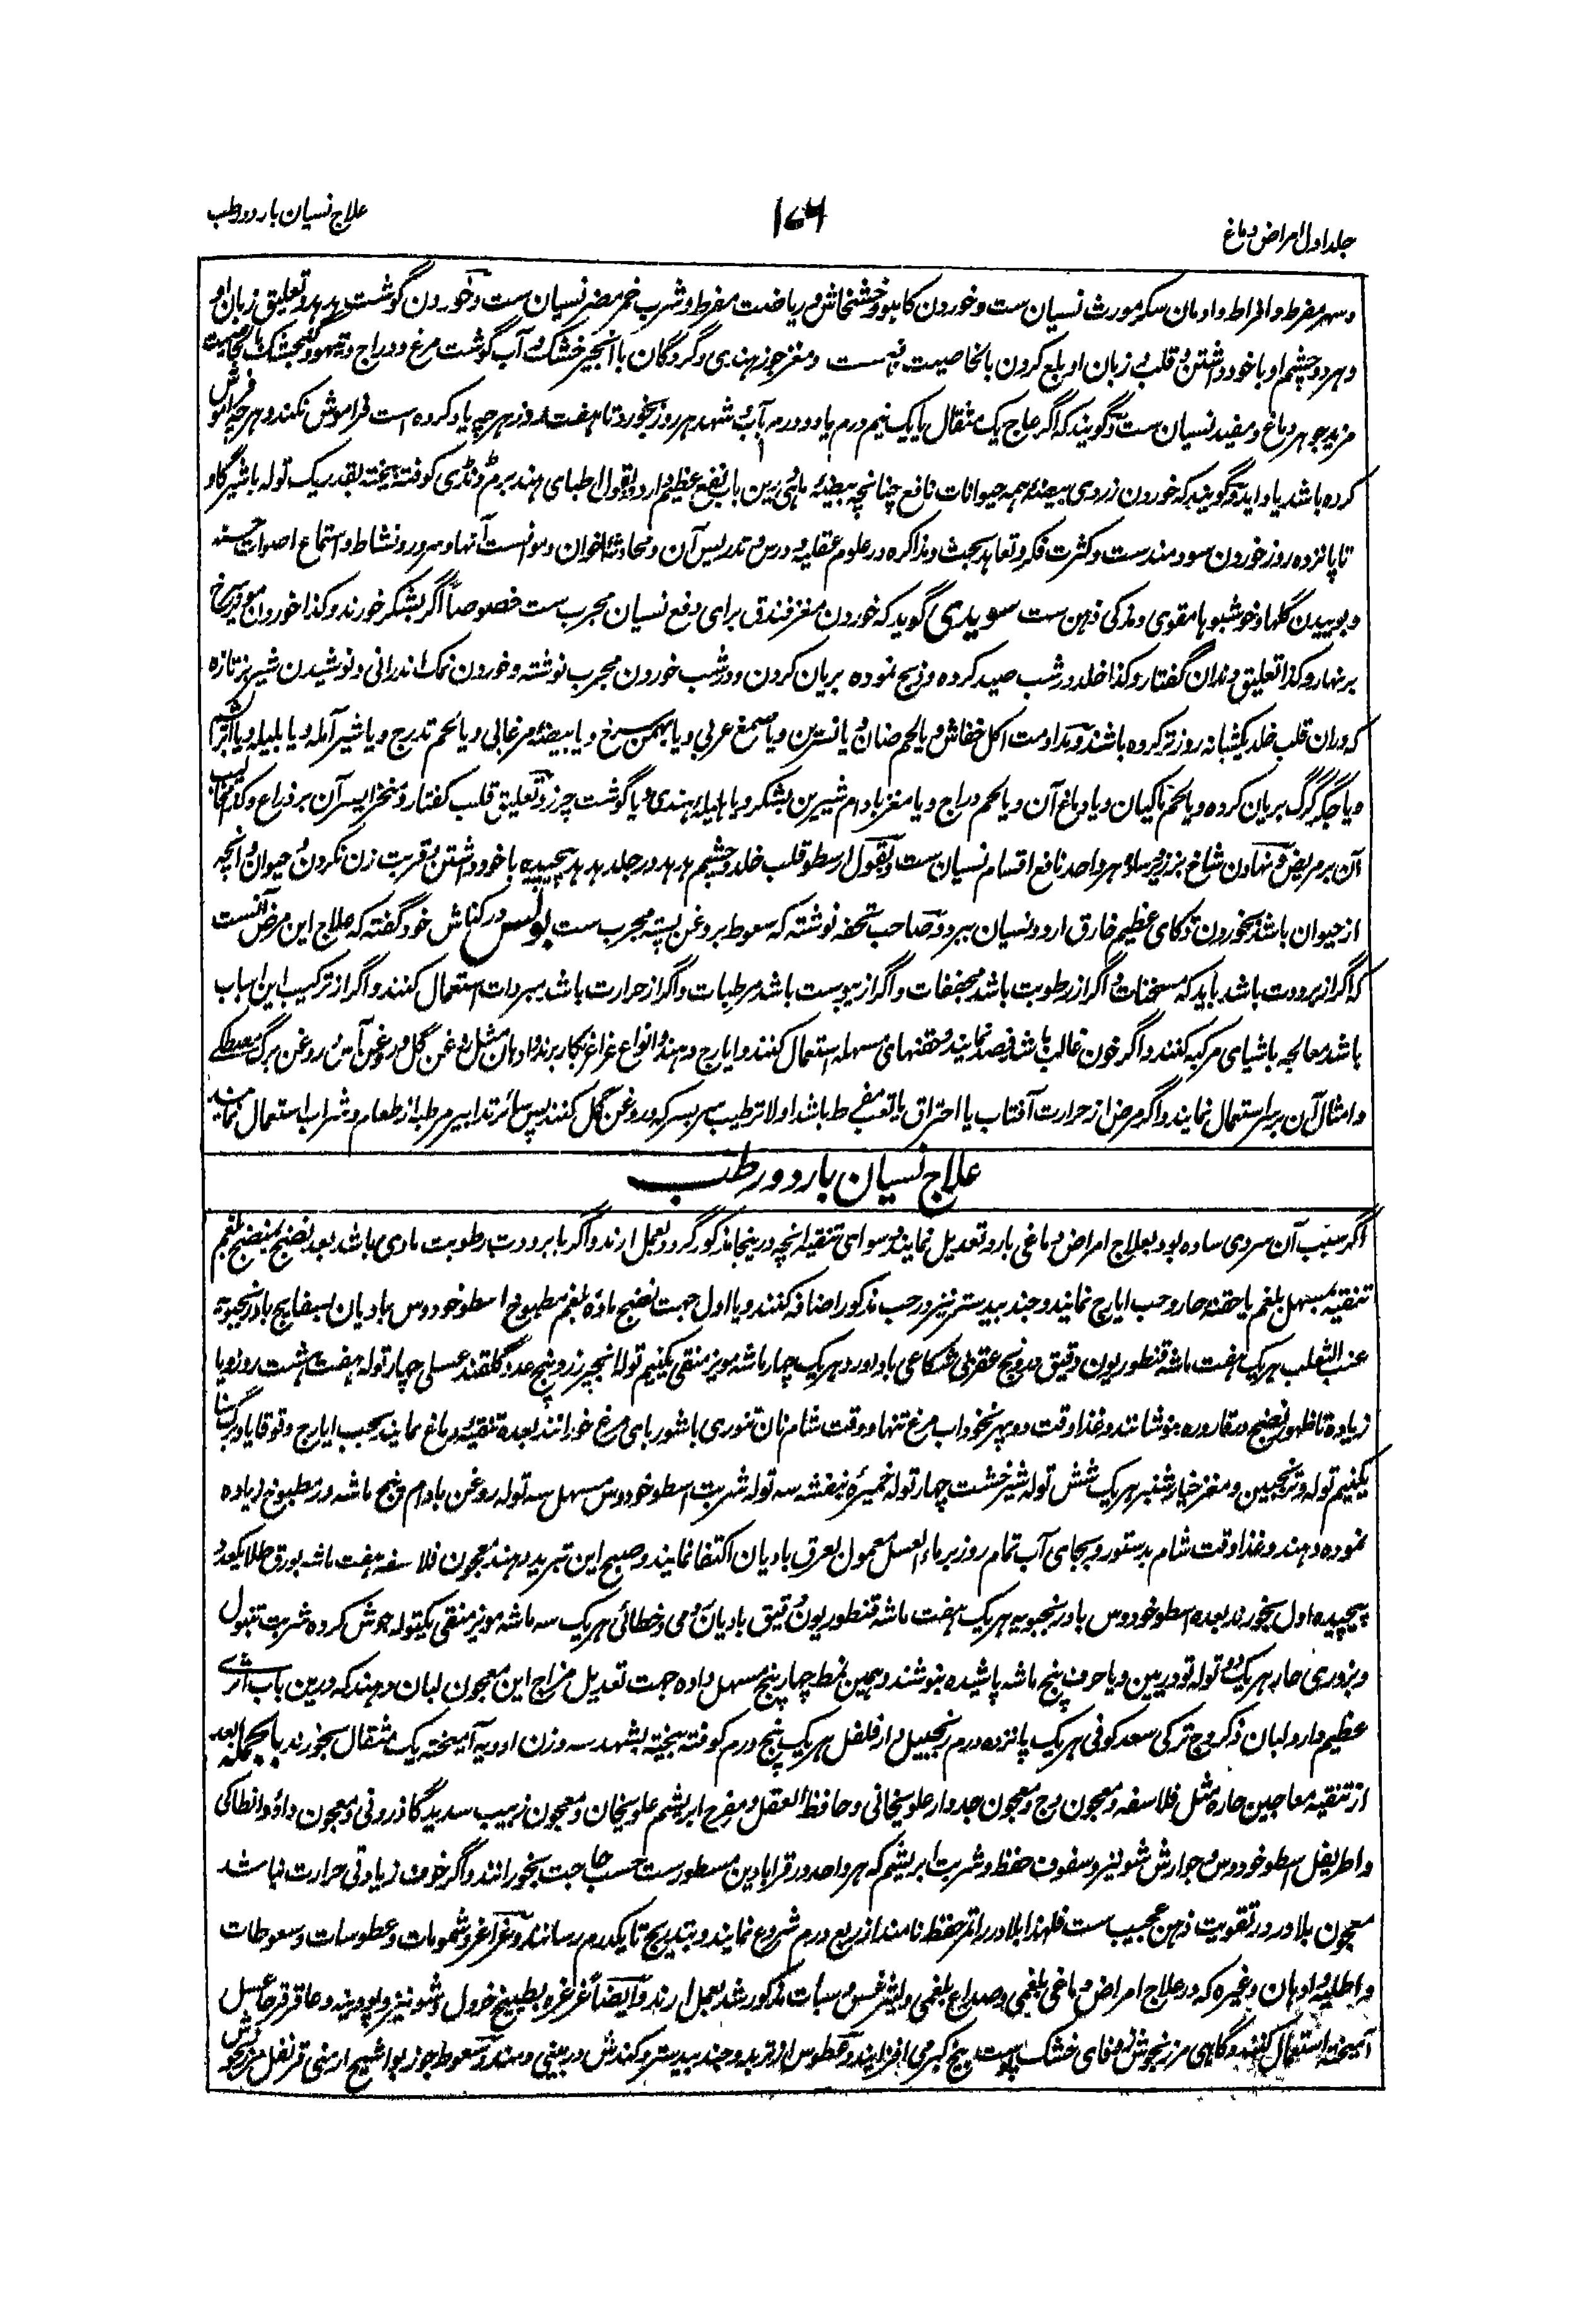 جلد اول امراض دماغ
۱۷۶
علاج نسیان بارد و رطب
و سهر مفرط و افراط و ادمان سکر مورث نسیان ست و خوردن کاهو و خشخاش و ریاضت مفرط و شرب خمر مضر نسیان ست و خوردن گوشت هدهد و تعلیق زبان او
و هر دو چشم او با خود داشتن و قلب و زبان او بلع کردن بالخاصیت و مغز جوز هندی و گردگان با انجیر خشک و آب گوشت مرغ و دراج و تیهو و گنجشک بالخاصیت
مزید جوهر دماغ و مفید نسیان ست و گویند که اگر عاج یک مثقال یا یک نیم درم یا دو درم بآب و شهد هر روز بخورد تا هفت روز هرچه یاد کرده است فراموش نکند و هرچه فراموش
کرده باشد یاد آید و گویند که خوردن زردی بیضه همه حیوانات نافع چنانچه بیضه ماهی درین باب نفع عظیم دارد و بقول اطبای هند برم ڈنڈی کوفته بیخته بقدر یک توله با شیر گاو
تا پانزده روز خوردن سودمند ست و کثرت فکر و تعاهد بحث و مذاکره در علوم عقلیه و درس و تدریس آن و محادثه اخوان و موانست آنها و سرور و نشاط و استماع اصوات حسنه
و بوییدن گلها و خوشبوها مقوی و مذکی ذهن ست سویدی گوید که خوردن مغز فندق برای دفع نسیان مجرب ست خصوصاً اگر بشکر خورند و کذا خوردن مویز سرخ
بر نهار و کذا تعلیق دندان گفتار و کذا خلد در شب صید کرده و ذبح نموده بریان کردن و در شب خوردن مجرب نوشته و خوردن نمک اندرانی و نوشیدن شیر بز تازه
که دران قلب خلد یکشبانه روز تر کرده باشند و مداومت اکل خفاش و یا لحم ضان و یا نسترن و یا صمغ عربی و یا بهمن سرخ و یا بیضه مرغابی و یا لحم تدرج و یا شیر آمله و یا بلیله و یا
و یا جگر گرگ بریان کرده و یا لحم ماکیان و یا دماغ آن و یا لحم دراج و یا مغز بادام شیرین بشکر و یا هلیله هندی و یا گوشت چرز و تعلیق قلب کفتار و منخر ایسر آن بر ذراع و
آن بر مریض و نهادن شاخ بز زیر سر او هر واحد نافع اقسام نسیان ست و بقول ارسطو قلب خلد و چشم هدهد در جلد هدهد پیچیده با خود داشتن و قربت زن نکردن و حیوان و آنچه
از حیوان باشد نخوردن ذکای عظیم خارق آرد و نسیان ببرد و صاحب تحفه نوشته که سعوط بروغن پسته مجرب ست بولس در کناش خود گفته که علاج این مرض آنست
که اگر از برودت باشد باید که مسخنات و اگر از رطوبت باشد مجففات و اگر از یبوست باشد مرطبات و اگر از حرارت باشد مبردات استعمال کنند و اگر از ترکیب این اسباب
باشد معالجه باشیای مرکبه کنند و اگر خون غالب باشد فصد نمایند و حقنهای مسهله استعمال کنند و ایارج دهند و انواع غراغر بکار برند و ادهان مثل روغن گل و روغن آس و روغن برگ مصطکی
و امثال آن بر سر استعمال نمایند و اگر مرض از حرارت آفتاب یا احتراق یا تعب مفرط باشد اولا ترطیب سر بسرکه و روغن گل کنند پس سائر تدابیر مرطبه از طعام و شراب استعمال نمایند
علاج نسیان بارد و رطب
اگر سبب آن سردی ساده بود بعلاج امراض دماغی بارد تعدیل نمایند و سوای تنقیه آنچه درینجا مذکور گردد بعمل آرند و اگر با برودت رطوبت مادی باشد بعد نضج بمنضج بلغم
تنقیه بمسهل بلغم یا حقنه حار و حب ایارج نمایند و جند بیدستر نیز در حب مذکور اضافه کنند و یا اول جهت نضج ماده بلغم مطبوخ اسطوخودوس بادیان بسفایج بادرنجبویه
عنب الثعلب هر یک هفت ماشه قنطوریون دقیق درونج عقربی شکاعی بادآورد هر یک چهار ماشه مویز منقی یکنیم توله انجیر زرد پنج عدد گلقند عسلی چهار توله هفت هشت روز و یا
زیاده تا ظهور نضج در قاروره بنوشانند و غذا وقت دوپهر نخودآب مرغ تنها و وقت شام نان تنوری با شوربای مرغ خورانند بعده تنقیه دماغ نمایند بحب ایارج و قوقایا و برگ سنا
یکنیم توله و ترنجبین و مغز خیارشنبر هر یک شش توله شیرخشت چهار توله خمیره بنفشه سه توله شربت اسطوخودوس مسهل سه توله روغن بادام پنج ماشه در مطبوخ زیاده
نموده دهند و غذا وقت شام بدستور و بجای آب تمام روز بر ماء العسل معمول بعرق بادیان اکتفا نمایند و صبح این تبرید دهند معجون فلاسفه هفت ماشه بورق طلا یکعدد
پیچیده اول بخورند بعده اسطوخودوس بادرنجبویه هر یک هفت ماشه قنطوریون دقیق بادیان رومی و خطائی هر یک سه ماشه مویز منقی یکتوله جوش کرده شربت تنبول
و بزوری حار هر یک دو توله تودریین و یا حرف پنج ماشه پاشیده بنوشند و بهمین نمط چهار پنج مسهل داده جهت تعدیل مزاج این معجون لبان دهند که درین باب اثری
عظیم دارد لبان ذکر وج ترکی سعد کوفی هر یک پانزده درم زنجبیل دارفلفل هر یک پنج درم کوفته بیخته بشهد سه وزن ادویه آمیخته یک مثقال بخورند بالجمله بعد
از تنقیه معاجین حاره مثل فلاسفه و معجون وج و معجون جدوار علویخانی و حافظ العقل و مفرح ابریشم علویخان و معجون زبیب سدید گاذرونی و معجون داؤد انطاکی
و اطریفل اسطوخودوس و جوارش شونیز و سفوف حفظ و شربت ابریشم که هر واحد در قرابادین مسطور ست حسب حاجت بخورانند و اگر خوف زیادتی حرارت نباشد
معجون بلادر در تقویت ذهن عجیب ست فلهذا بلادر را ثمر حفظ نامند از ربع درم شروع نمایند و بتدریج تا یکدرم رسانند و غراغر و شمومات و عطوسات و سعوطات
و اطلیه و ادهان وغیره که در علاج امراض دماغی بلغمی و صداع بلغمی و لیثرغس و سبات مذکور شد بعمل آرند و ایضاً غرغره بطبیخ خردل و شونیز و پودینه و عاقرقرحا بعسل
آمیخته استعمال کنند و گاهی مرزنجوش زوفای خشک پوست بیخ کبر می افزایند و عطوس از تربد و جند بیدستر و کندش در بینی دمند و سعوط جوزبوا شیح ارمنی قرنفل مرزنجوش